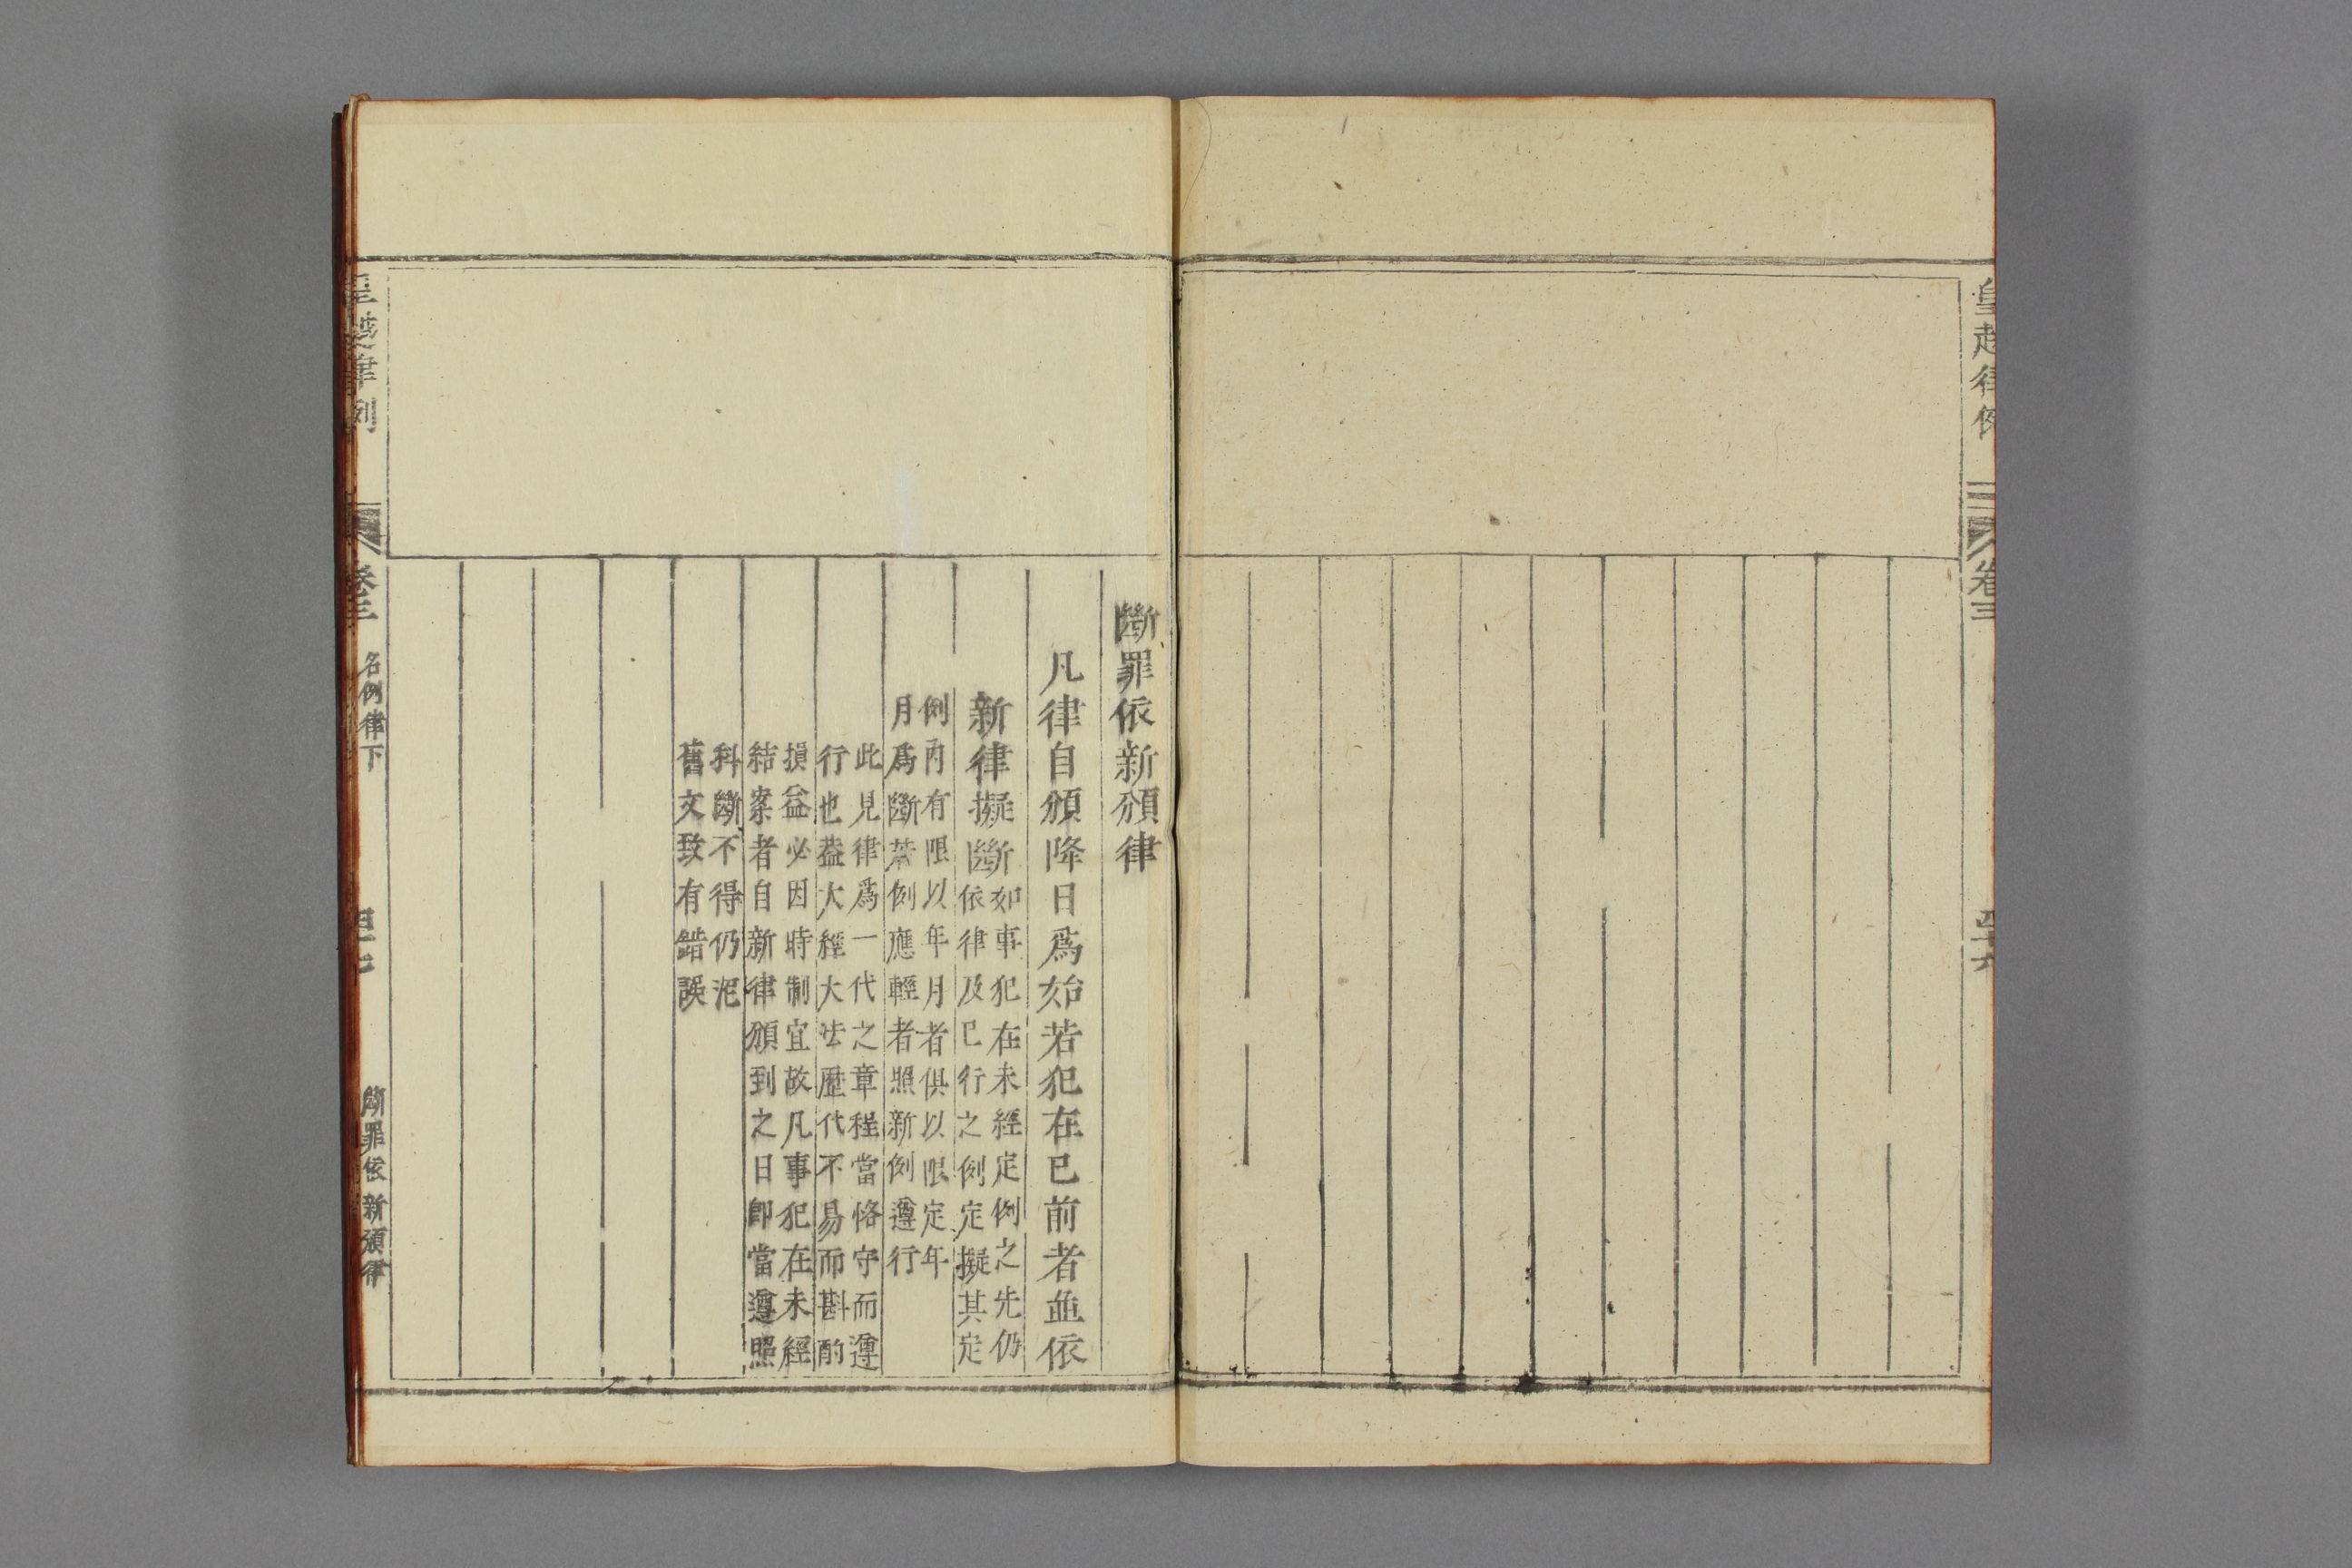 皇越律例
卷三
四十六
斷罪依新頒律
凡律自頒降日爲始若犯在已前者並依
新律擬斷
如事犯在未經定例之先仍
依律及已行之例定擬其定
例內有限以年月者俱以限定年
月爲斷若例應輕者照新例遵行
此見律爲一代之章程當恪守而遵
行也蓋大經大法歷代不易而斟酌
損益必因時制宜故凡事犯在未經
結案者自新律頒到之日卽當遵照
科斷不得仍泥
舊文致有錯誤
皇越律例
卷三
名例律下
斷罪依新頒律